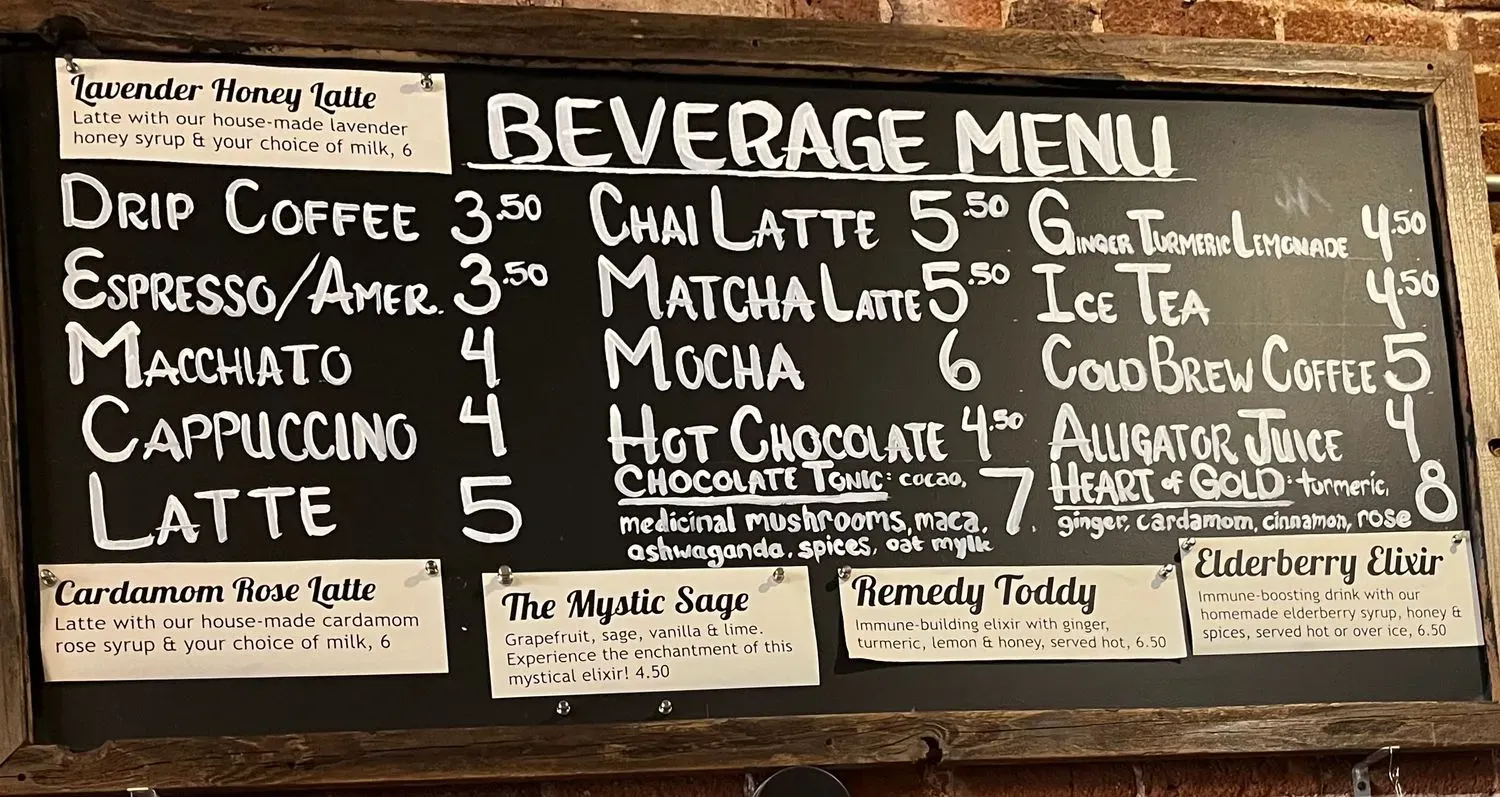 Lavender Honey Latte
Latte with our house-made lavender
honey syrup & your choice of milk, 6
BEVERAGE MENU
DRIP COFFEE 3.50
ESPRESSO/AMER. 3.50
MACCHIATO 4
CAPPUCCINO 4
LATTE 5
CHAI LATTE 5.50
MATCHA LATTE 5.50
MOCHA 6
HOT CHOCOLATE 4.50
CHOCOLATE TONIC: cocao, 7
medicinal mushrooms, maca,
ashwaganda, spices, oat mylk
GINGER TURMERIC LEMONADE 4.50
ICE TEA 4.50
COLD BREW COFFEE 5
ALLIGATOR JUICE 4
HEART of GOLD: turmeric, 8
ginger, cardamom, cinnamon, rose
Cardamom Rose Latte
Latte with our house-made cardamom
rose syrup & your choice of milk, 6
The Mystic Sage
Grapefruit, sage, vanilla & lime.
Experience the enchantment of this
mystical elixir! 4.50
Remedy Toddy
Immune-building elixir with ginger,
turmeric, lemon & honey, served hot, 6.50
Elderberry Elixir
Immune-boosting drink with our
homemade elderberry syrup, honey &
spices, served hot or over ice, 6.50